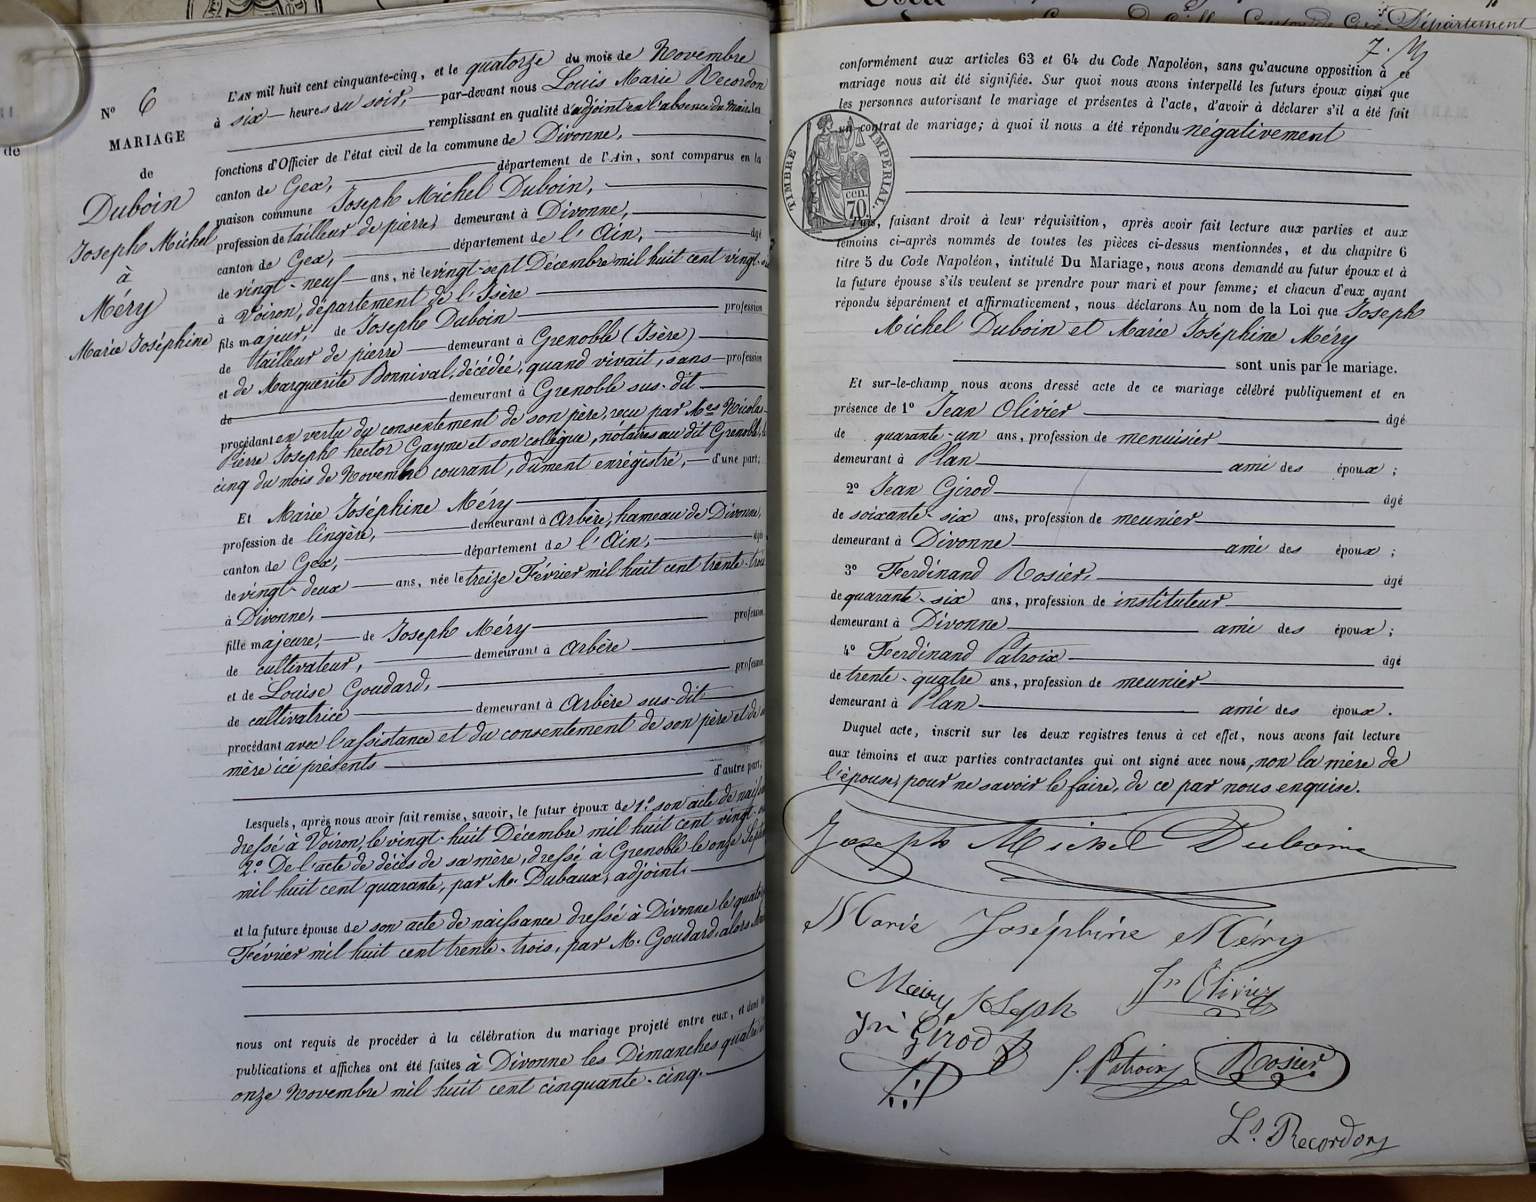 N° 6
MARIAGE
de
Duboin
Joseph Michel
à
Méry
Marie Joséphine
L'AN mil huit cent cinquante-cinq, et le quatorze du mois de Novembre
à six heures du soir, par-devant nous Louis Marie Recordon
remplissant en qualité d'adjoint en l'absence du Maire, les
fonctions d'Officier de l'état civil de la commune de Divonne,
canton de Gex, département de l'Ain, sont comparus en la
maison commune Joseph Michel Duboin,
profession de tailleur de pierre, demeurant à Divonne,
canton de Gex, département de l'Ain, âgé
de vingt-neuf ans, né le vingt-sept Décembre mil huit cent vingt-
à Voiron, département de l'Isère
fils majeur, de Joseph Duboin profession
de tailleur de pierre demeurant à Grenoble (Isère)
et de Marguerite Bonnival, décédée, quand vivait, sans profession
de demeurant à Grenoble sus-dit
procédant en vertu du consentement de son père, reçu par Mes Nicolas
Pierre Joseph hector Gayme et son collègue, nôtaires au dit Grenoble, le
cinq du mois de Novembre courant, dûment enrégistré, d'une part;
Et Marie Joséphine Méry
profession de lingère, demeurant à Arbère, hameau de Divonne,
canton de Gex, département de l'Ain, âgé
de vingt-deux ans, née le treize Février mil huit cent trente-trois
à Divonne,
fille majeure, de Joseph Méry profession
de cultivateur, demeurant à Arbère
et de Louise Goudard, profession
de cultivatrice demeurant à Arbère sus-dit
procédant avec l'assistance et du consentement de son père et de sa
mère ici présents d'autre part,
Lesquels, après nous avoir fait remise, savoir, le futur époux de 1° son acte de naissance
dressé à Voiron, le vingt-huit Décembre mil huit cent vingt-
2° De l'acte de décès de sa mère, dressé à Grenoble le onze Septembre
mil huit cent quarante, par Mr. Dubaux, adjoint.
et la future épouse de son acte de naissance dressé à Divonne le quatorze
Février mil huit cent trente-trois, par M. Goudard, alors Maire
nous ont requis de procéder à la célébration du mariage projeté entre eux, et dont les
publications et affiches ont été faites à Divonne les Dimanches quatre et
onze Novembre mil huit cent cinquante-cinq.
Département
7.
conformément aux articles 63 et 64 du Code Napoléon, sans qu'aucune opposition à ce
mariage nous ait été signifiée. Sur quoi nous avons interpellé les futurs époux ainsi que
les personnes autorisant le mariage et présentes à l'acte, d'avoir à déclarer s'il a été fait
un contrat de mariage; à quoi il nous a été répondu négativement
TIMBRE IMPERIAL
70 cen.
Puis, faisant droit à leur réquisition, après avoir fait lecture aux parties et aux
témoins ci-après nommés de toutes les pièces ci-dessus mentionnées, et du chapitre 6
titre 5 du Code Napoléon, intitulé Du Mariage, nous avons demandé au futur époux et à
la future épouse s'ils veulent se prendre pour mari et pour femme; et chacun d'eux ayant
répondu séparément et affirmativement, nous déclarons Au nom de la Loi que Joseph
Michel Duboin et Marie Joséphine Méry
sont unis par le mariage.
Et sur-le-champ nous avons dressé acte de ce mariage célébré publiquement et en
présence de 1° Jean Olivier âgé
de quarante-un ans, profession de menuisier
demeurant à Plan ami des époux;
2° Jean Girod âgé
de soixante-six ans, profession de meunier
demeurant à Divonne ami des époux;
3° Ferdinand Rosier, âgé
de quarante-six ans, profession de instituteur
demeurant à Divonne ami des époux;
4° Ferdinand Patroix âgé
de trente-quatre ans, profession de meunier
demeurant à Plan ami des époux.
Duquel acte, inscrit sur les deux registres tenus à cet effet, nous avons fait lecture
aux témoins et aux parties contractantes qui ont signé avec nous, non la mère de
l'épouse, pour ne savoir le faire, de ce par nous enquise.
Joseph Michel Duboin
Marie Joséphine Méry
Méry Joseph
Jn Olivier
Jn Girod
f. Patroix
Rosier
Ls Recordon